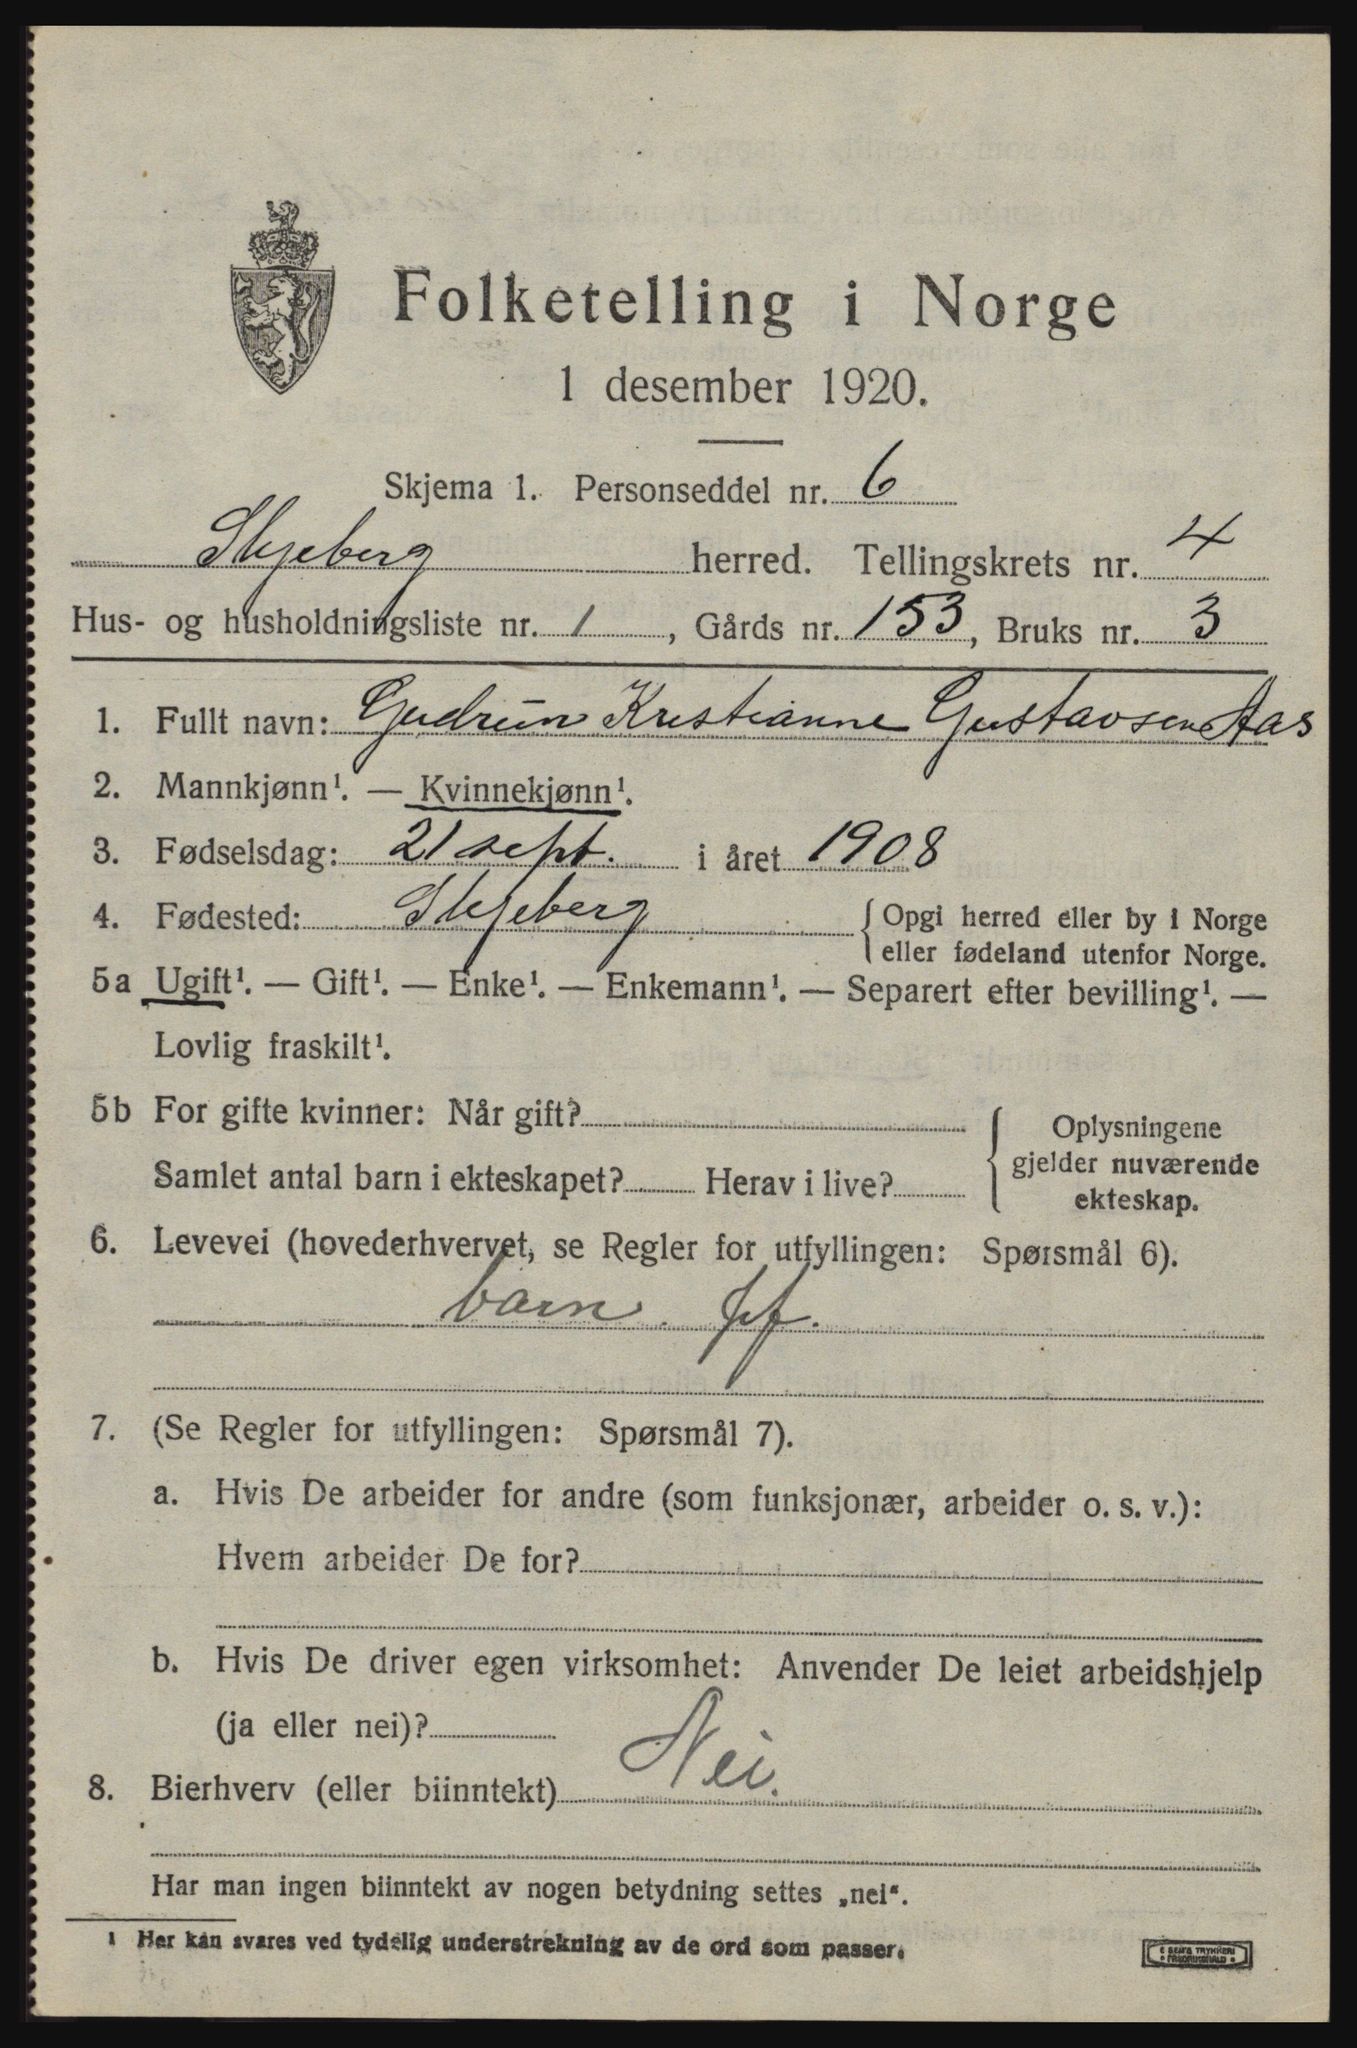 Folketelling i Norge
1 desember 1920.
Skjema 1. Personseddel nr. 6
Skjeberg herred. Tellingskrets nr. 4
Hus- og husholdningsliste nr. 1, Gårds nr. 153, Bruks nr. 3
1. Fullt navn: Gudrun Kristianne Gustavsen Aas
2. Mannkjønn¹. — Kvinnekjønn¹.
3. Fødselsdag: 21 sept. i året 1908
4. Fødested: Skjeberg {Opgi herred eller by i Norge
eller fødeland utenfor Norge.
5a Ugift¹. — Gift¹. — Enke¹. — Enkemann¹. — Separert efter bevilling¹. —
Lovlig fraskilt¹.
5b For gifte kvinner: Når gift? { Oplysningene
gjelder nuværende
Samlet antal barn i ekteskapet? Herav i live?
ekteskap.
6. Levevei (hovederhvervet, se Regler for utfyllingen: Spørsmål 6).
barn.
7. (Se Regler for utfyllingen: Spørsmål 7).
a. Hvis De arbeider for andre (som funksjonær, arbeider o. s. v.):
Hvem arbeider De for?
b. Hvis De driver egen virksomhet: Anvender De leiet arbeidshjelp
(ja eller nei)?
8. Bierhverv (eller biinntekt) Nei.
Har man ingen biinntekt av nogen betydning settes „nei“.
1 Her kan svares ved tydelig understrekning av de ord som passer.